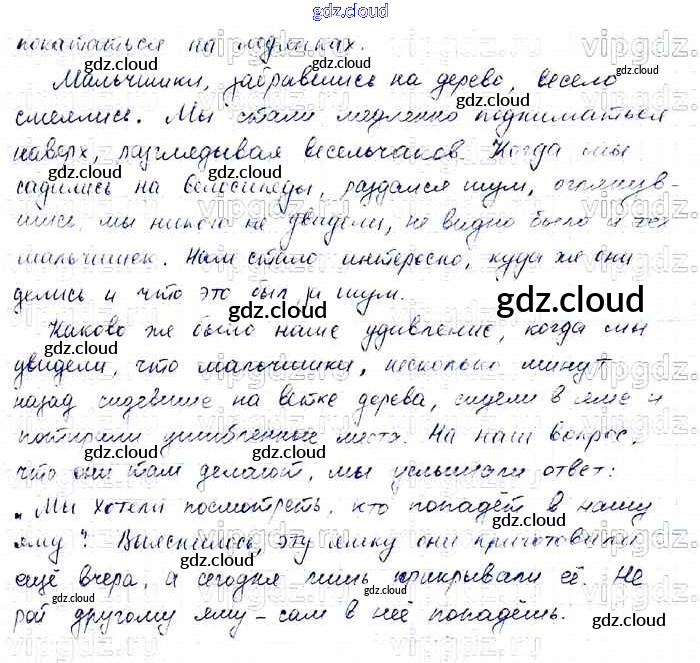 gdz.cloud
покататься на лодочках.
Мальчишки, забравшись на дерево, весело
смеялись. Мы стали медленно подниматься
наверх, разглядывая весельчаков. Когда мы
садились на велосипеды, раздался шум, оглянув-
шись, мы никого не увидели, не видно было и тех
мальчишек. Нам стало интересно, куда же они
делись и что это был за шум.
Каково же было наше удивление, когда мы
увидели, что мальчишки, несколько минут
назад сидевшие на ветке дерева, сидели в яме и
потирали ушибленные места. На наш вопрос,
что они там делают, мы услышали ответ:
„Мы хотели посмотреть, кто попадёт в нашу
яму". Выяснилось, эту ямку они приготовили
ещё вчера, а сегодня лишь прикрывали её. Не
рой другому яму – сам в неё попадёшь.